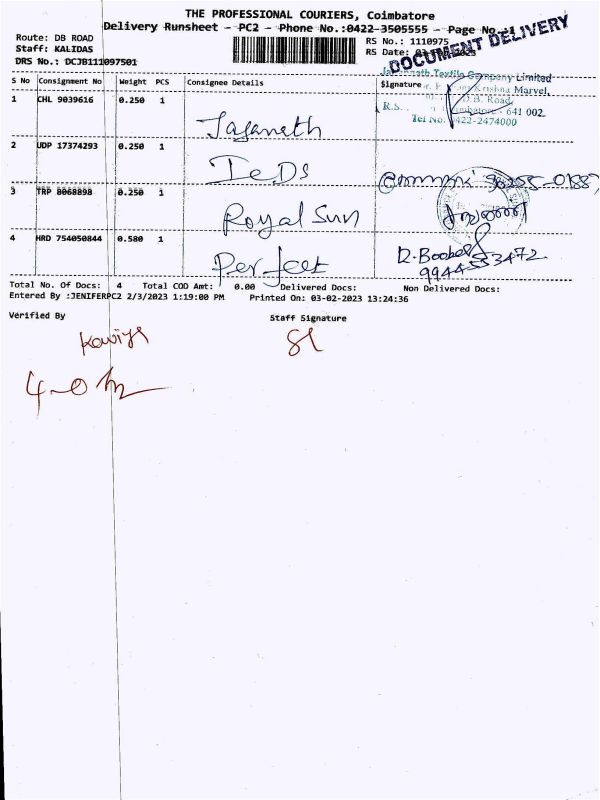 THE PROFESSIONAL COURIERS, Coimbatore
Delivery Runsheet - PC2 - Phone No.:0422-3505555 - Page No.:1
DOCUMENT DELIVERY
Route: DB ROAD
RS No.: 1110975
Staff: KALIDAS
RS Date: 03-02-2023
DRS No.: DCJB111097501
Textile Company Limited
S No Consignment No Weight PCS Consignee Details Signature
Krishna Marvel,
D.B. Road,
R.S. 641 002.
Tel No. 0422-2474000
1 CHL 9039616 0.250 1 Jaganath
2 UDP 17374293 0.250 1 IeDS
3 TRP 8068898 0.250 1 Royal Sun
4 HRD 754050844 0.580 1 Perfect
Total No. Of Docs: 4 Total COD Amt: 0.00 Delivered Docs: Non Delivered Docs:
Entered By :JENIFERPC2 2/3/2023 1:19:00 PM Printed On: 03-02-2023 13:24:36
Verified By Staff Signature